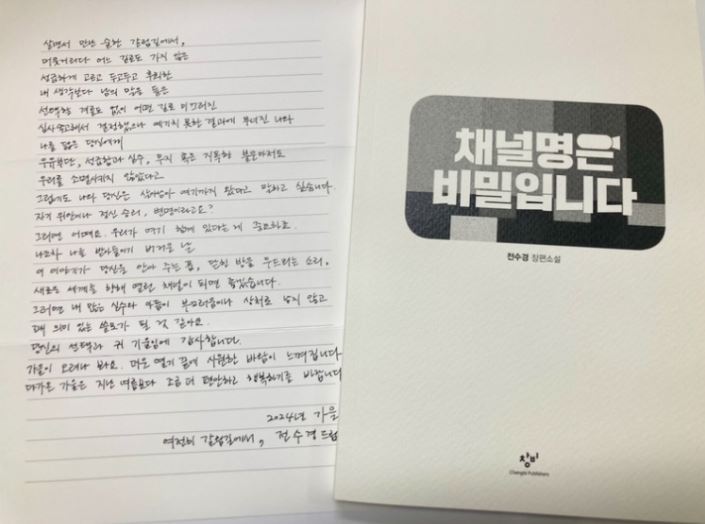 살면서 만난 숱한 갈림길에서,
머뭇거리다 어느 길로도 가지 않은
성급하게 고르고 두고두고 후회한
내 생각보다 남의 말을 들은
선택할 겨를도 없이 어떤 길로 떠밀려진
심사숙고해서 결정했으나 예기치 못한 결과에 무너진 나와
나를 닮은 당신에게
우유부단, 성급함과 실수, 무지 혹은 지독한 불운마저도
우리를 소멸시키지 않았다고
그럼에도 나와 당신은 살아남아 여기까지 왔다고 말하고 싶습니다.
자기 위안이나 정신 승리, 변명이라고요?
그러면 어때요. 우리가 여기 함께 있다는 게 중요하죠.
나조차 나를 받아들이기 버거운 날
이 이야기가 당신을 안아 주는 품, 닫힌 방을 두드리는 소리,
새로운 세계를 향해 열린 채널이 되면 좋겠습니다.
그러면 내 많은 실수와 아픔이 부끄러움이나 상처로 남지 않고
꽤 의미 있는 쓸모가 될 것 같아요.
당신의 선택과 귀 기울임에 감사합니다.
가을이 오려나 봐요. 더운 열기 끝에 시원한 바람이 느껴집니다
다가온 가을은 지난 여름보다 조금 더 편안하고 행복하기를 바랍니다
2024년 가을
여전히 갈림길에서, 전수경 드림
채널명은
비밀입니다
전수경 장편소설
창비
Changbi Publishers